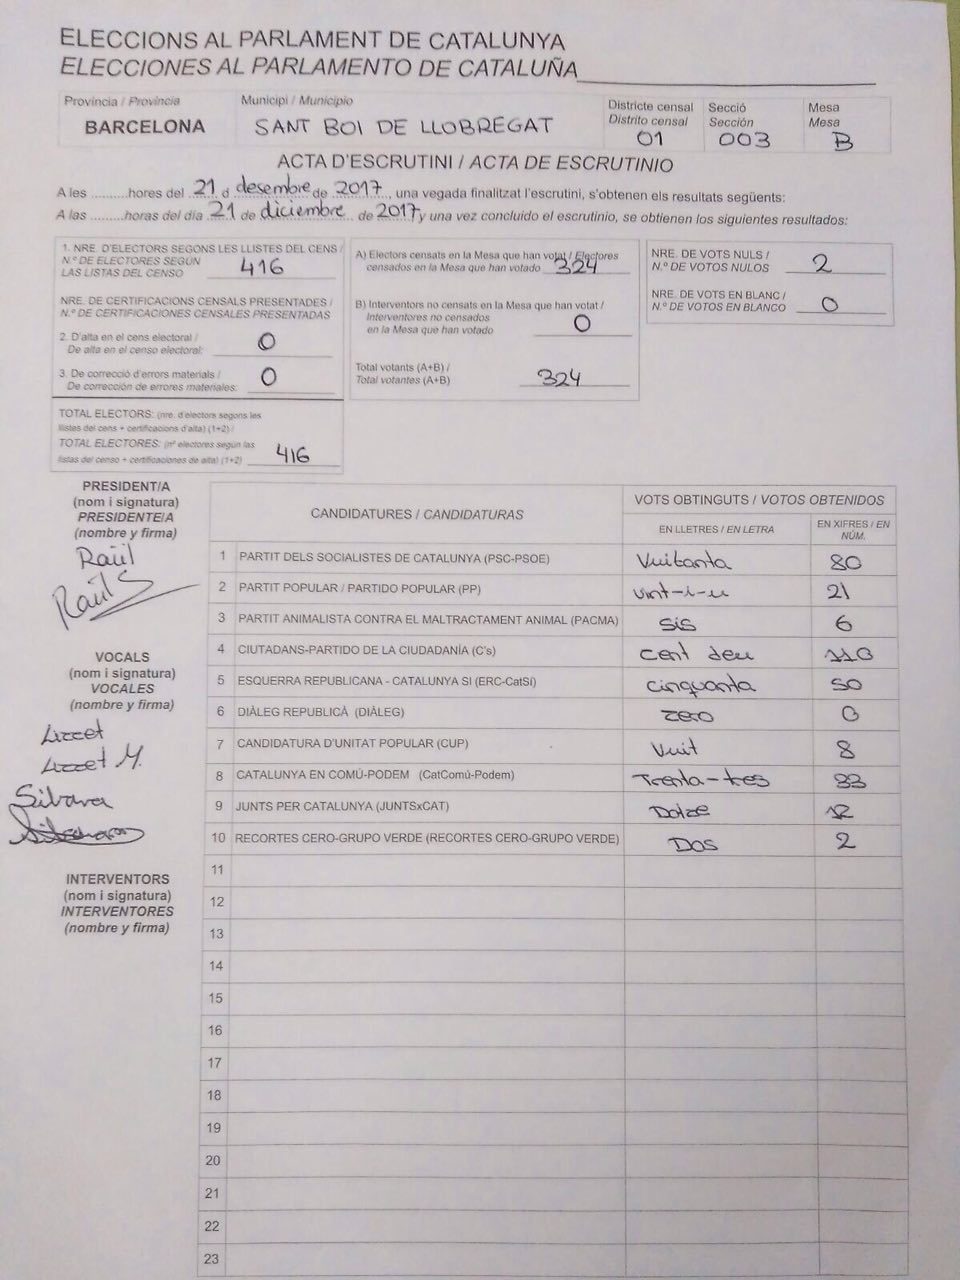 ELECCIONS AL PARLAMENT DE CATALUNYA
ELECCIONES AL PARLAMENTO DE CATALUÑA
Província / Provincia
BARCELONA
Municipi / Municipio
SANT BOI DE LLOBREGAT
Districte censal
Distrito censal
01
Secció
Sección
003
Mesa
Mesa
B
ACTA D'ESCRUTINI / ACTA DE ESCRUTINIO
A les .........hores del 21 d desembre de 2017, una vegada finalitzat l'escrutini, s'obtenen els resultats següents:
A las .........horas del día 21 de diciembre de 2017 y una vez concluido el escrutinio, se obtienen los siguientes resultados:
1. NRE. D'ELECTORS SEGONS LES LLISTES DEL CENS /
N.º DE ELECTORES SEGÚN
LAS LISTAS DEL CENSO 416
NRE. DE CERTIFICACIONS CENSALS PRESENTADES /
N.º DE CERTIFICACIONES CENSALES PRESENTADAS
2. D'alta en el cens electoral /
De alta en el censo electoral: 0
3. De correcció d'errors materials /
De corrección de errores materiales: 0
TOTAL ELECTORS: (nre. d'electors segons les
llistes del cens + certificacions d'alta) (1+2) /
TOTAL ELECTORES: (nº electores según las
listas del censo + certificaciones de alta) (1+2) 416
A) Electors censats en la Mesa que han votat / Electores
censados en la Mesa que han votado 324
B) Interventors no censats en la Mesa que han votat /
Interventores no censados
en la Mesa que han votado 0
Total votants (A+B) /
Total votantes (A+B) 324
NRE. DE VOTS NULS /
N.º DE VOTOS NULOS 2
NRE. DE VOTS EN BLANC /
N.º DE VOTOS EN BLANCO 0
PRESIDENT/A
(nom i signatura)
PRESIDENTE/A
(nombre y firma)
Raül
Raül S
VOCALS
(nom i signatura)
VOCALES
(nombre y firma)
Lizzet
Lizzet M.
INTERVENTORS
(nom i signatura)
INTERVENTORES
(nombre y firma)
CANDIDATURES / CANDIDATURAS
VOTS OBTINGUTS / VOTOS OBTENIDOS
EN LLETRES / EN LETRA
EN XIFRES / EN
NÚM.
1 PARTIT DELS SOCIALISTES DE CATALUNYA (PSC-PSOE) Vuitanta 80
2 PARTIT POPULAR / PARTIDO POPULAR (PP) vint-i-u 21
3 PARTIT ANIMALISTA CONTRA EL MALTRACTAMENT ANIMAL (PACMA) sis 6
4 CIUTADANS-PARTIDO DE LA CIUDADANÍA (C's) cent deu 110
5 ESQUERRA REPUBLICANA - CATALUNYA SI (ERC-CatSí) cinquanta 50
6 DIÀLEG REPUBLICÀ (DIÀLEG) zero 0
7 CANDIDATURA D'UNITAT POPULAR (CUP) Vuit 8
8 CATALUNYA EN COMÚ-PODEM (CatComú-Podem) Trenta-tres 33
9 JUNTS PER CATALUNYA (JUNTSxCAT) Dotze 12
10 RECORTES CERO-GRUPO VERDE (RECORTES CERO-GRUPO VERDE) Dos 2
11
12
13
14
15
16
17
18
19
20
21
22
23